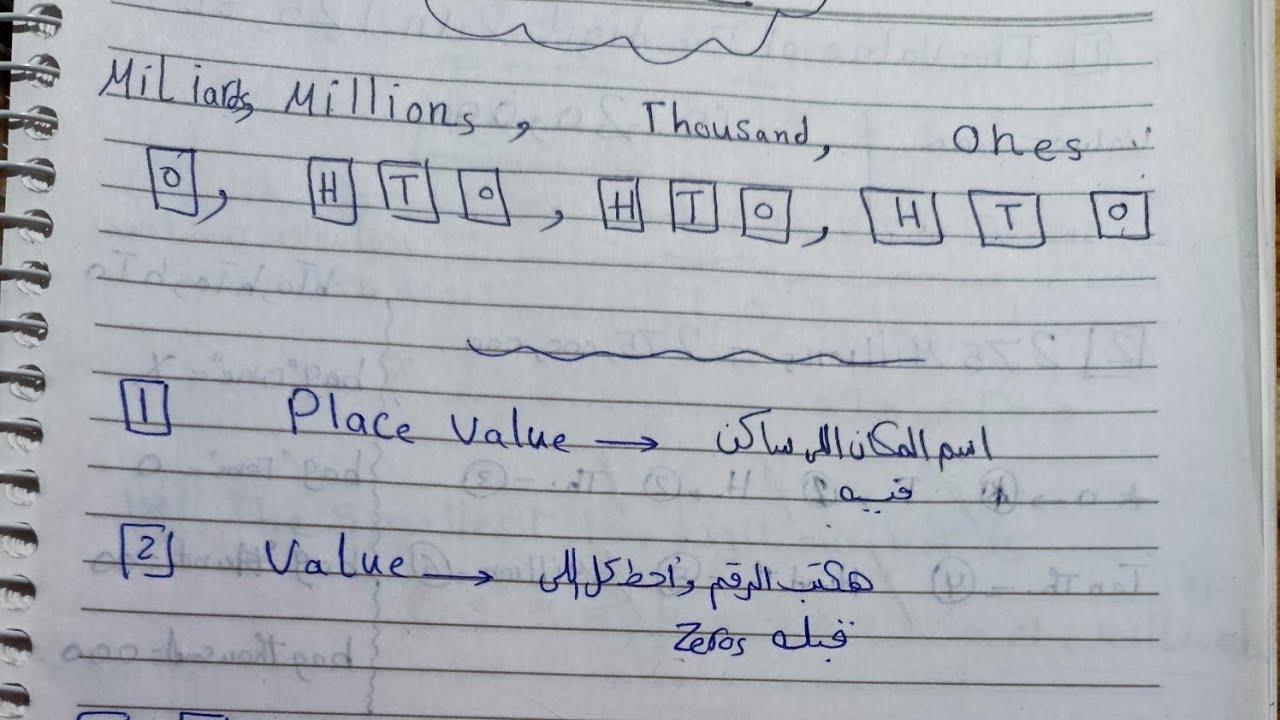 Miliards, Millions, Thousand, Ones
O, H T O, H T O, H T O
1 Place Value → اسم المكان اللى ساكن
فيه
2 Value → هكتب الرقم وأحط كل اللى
قبله Zeros